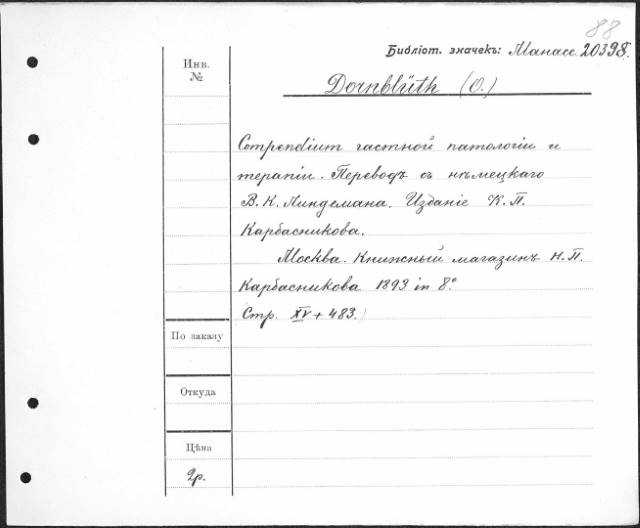 88
Библіот. значекъ: Манасс. 20398.
Инв. №
Dornblüth (O.)
Compendium частной патологіи и
терапіи. Переводъ съ нѣмецкаго
В. К. Линдемана. Изданіе К. П.
Карбасникова.
Москва. Книжный магазинъ Н. П.
Карбасникова 1893 in 8°
Стр. XV + 483.
По заказу
Откуда
Цѣна
2р.